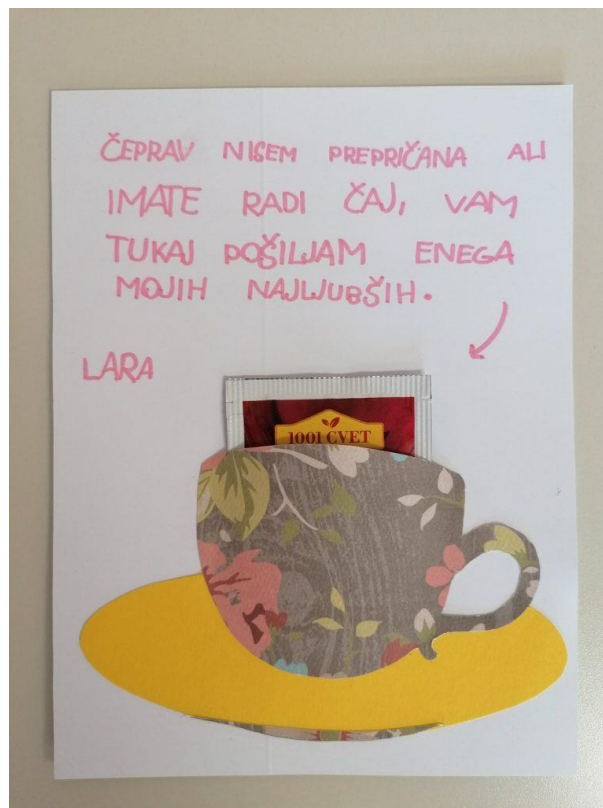 ČEPRAV NISEM PREPRIČANA ALI
IMATE RADI ČAJ, VAM
TUKAJ POŠILJAM ENEGA
MOJIH NAJLJUBŠIH.
LARA
1001 CVET